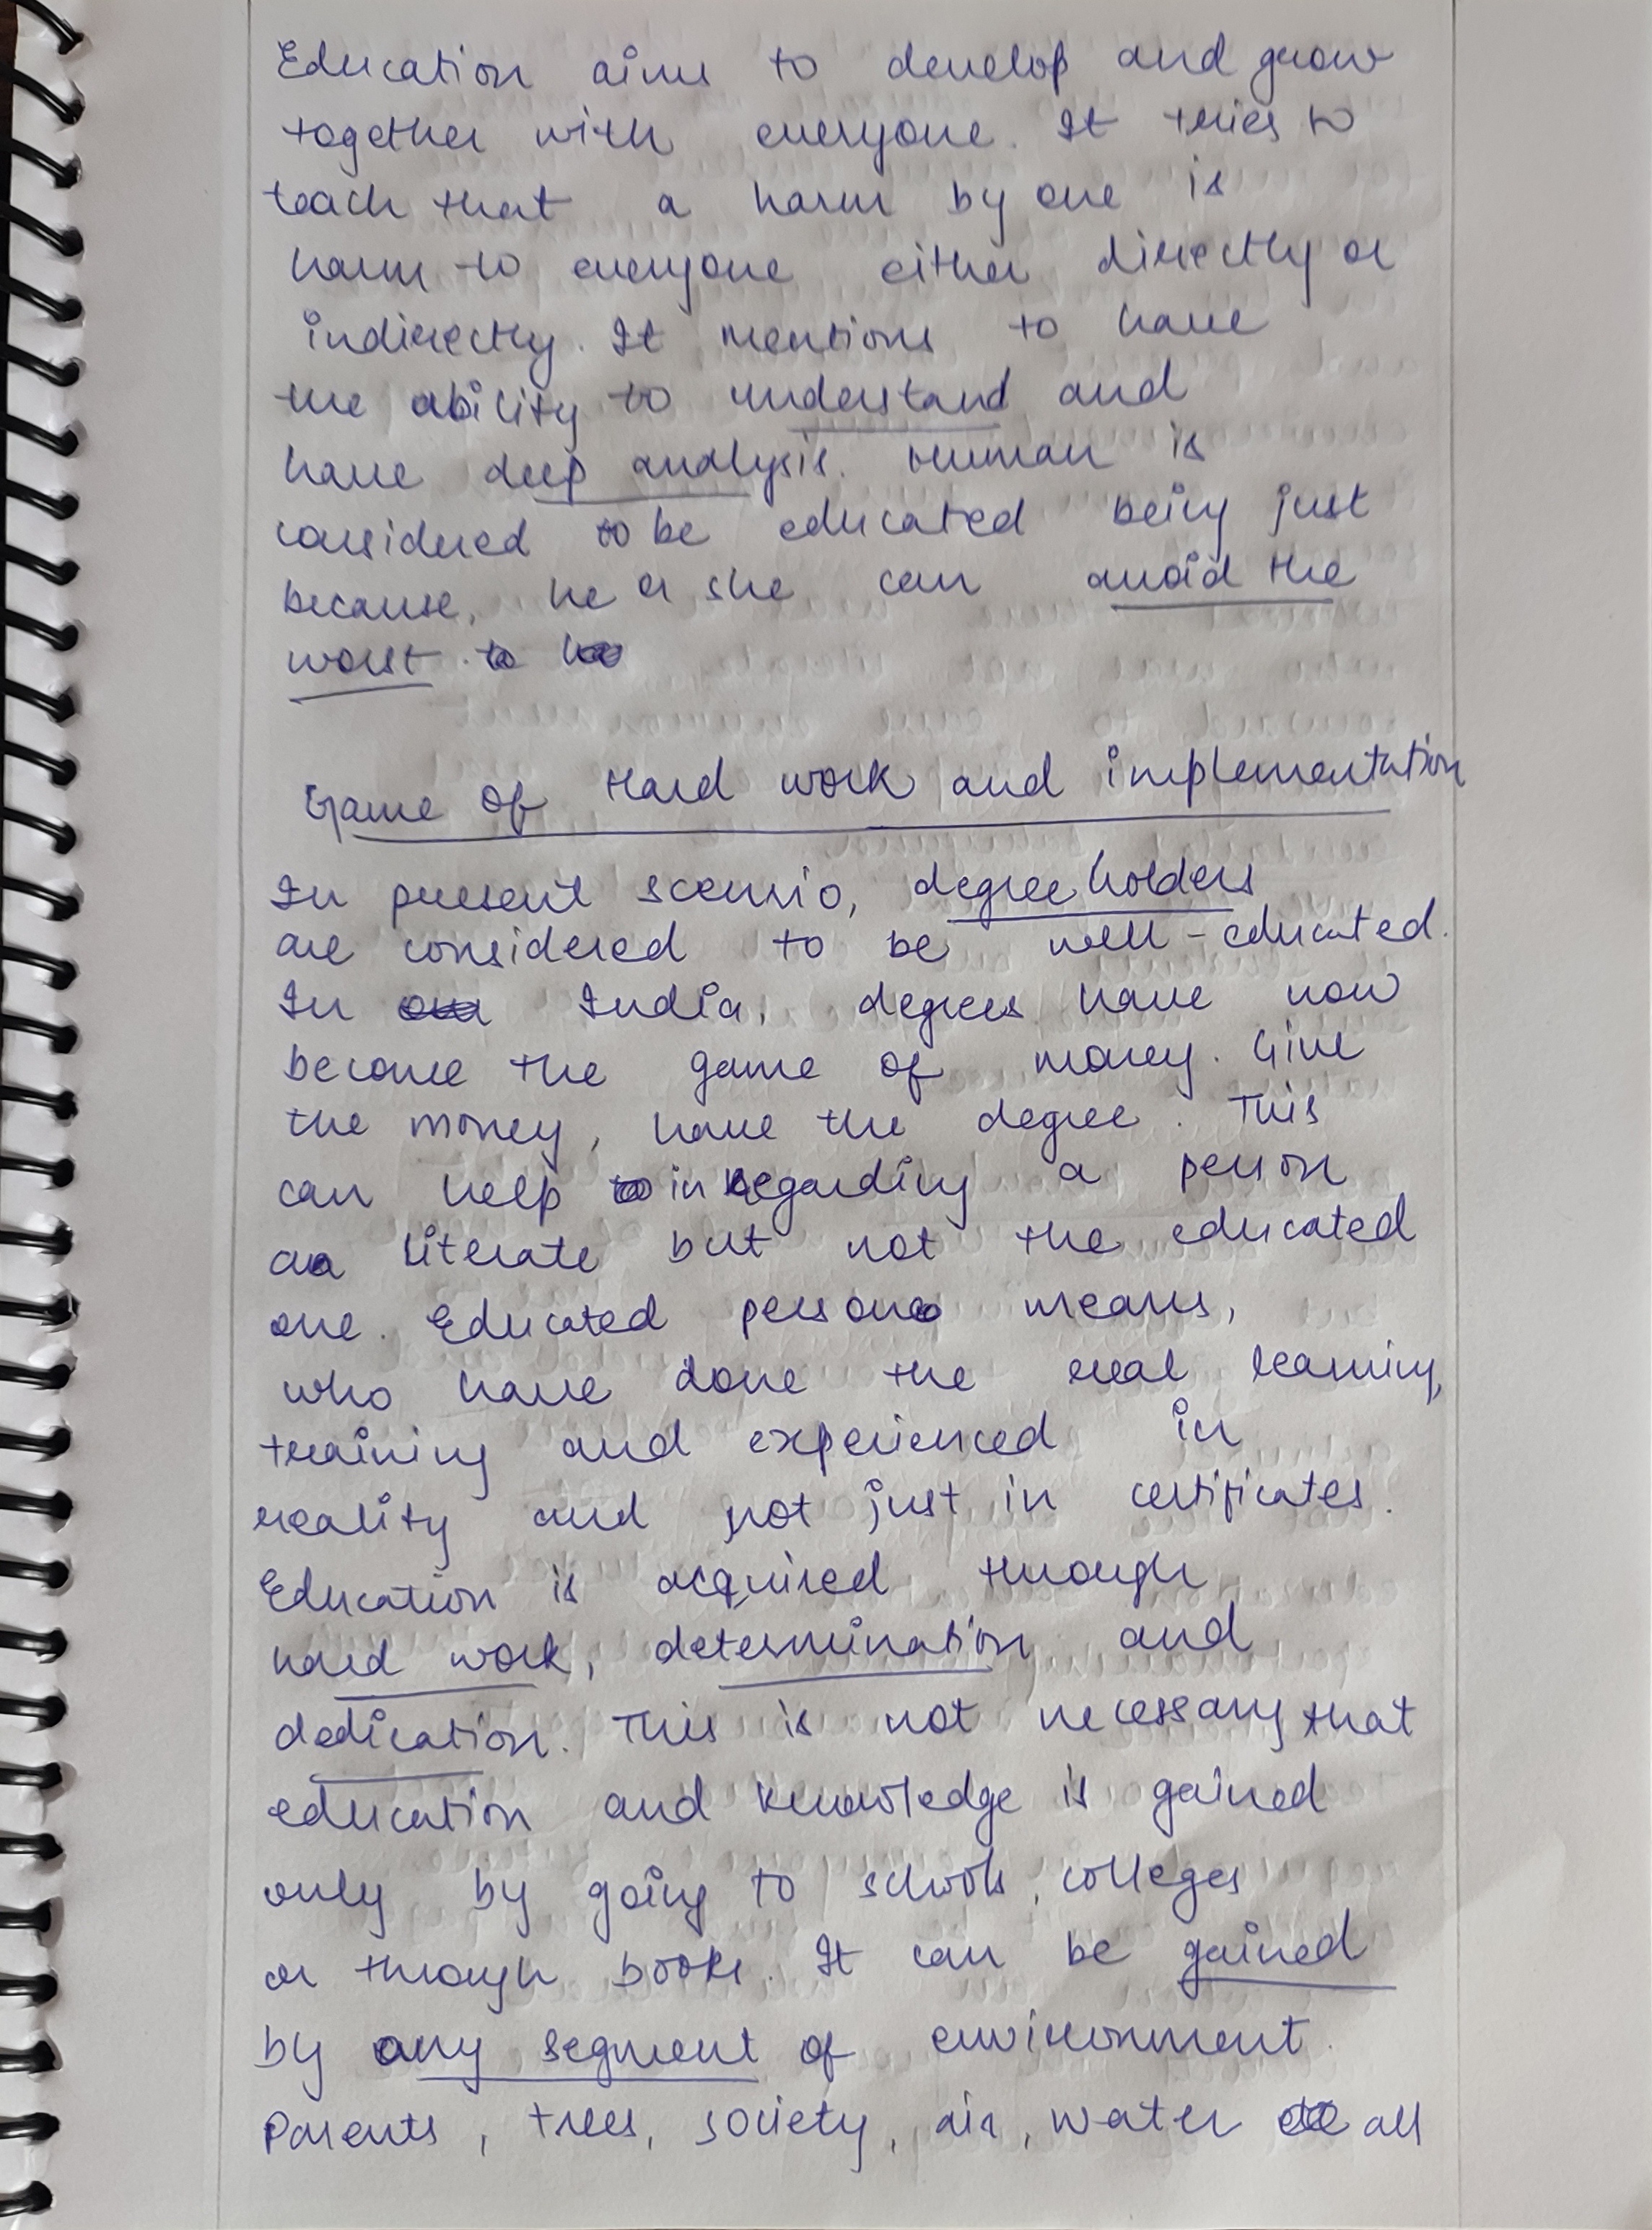 Education aims to develop and grow
together with everyone. It tries to
teach that a harm by one is
harm to everyone either directly or
indirectly. It mentions to have
the ability to understand and
have deep analysis. Human is
considered to be educated being just
because, he or she can avoid the
worst.
Game of Hard work and implementation
In present scenrio, degree holders
are considered to be well-educated.
In India, degrees have now
become the game of money. Give
the money, have the degree. This
can help in regarding a person
as literate but not the educated
one. Educated person means,
who have done the real learning,
training and experienced in
reality and not just in certificates.
Education is acquired through
hard work, determination and
dedication. This is not necessary that
education and knowledge is gained
only by going to schools, colleges
or through books. It can be gained
by any segment of environment.
Parents, trees, society, air, water all